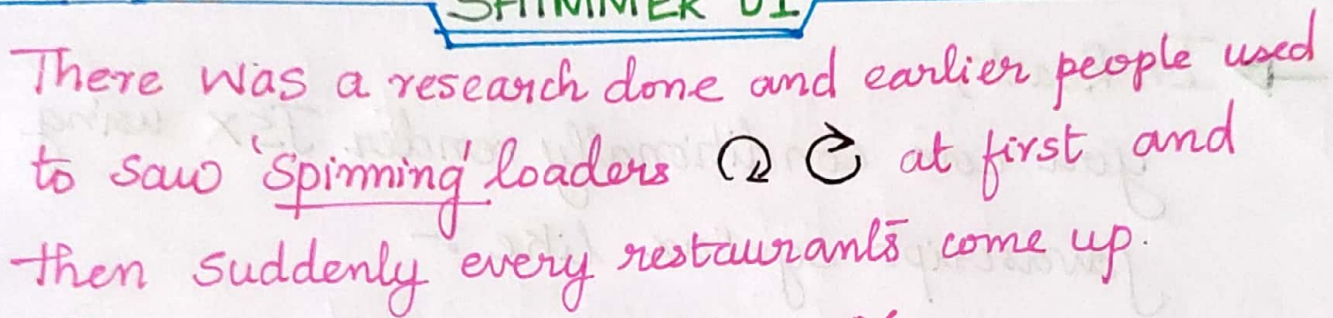 SHIMMER UI
There was a research done and earlier people used
to saw 'Spinning' loaders at first and
then suddenly every restaurants come up.